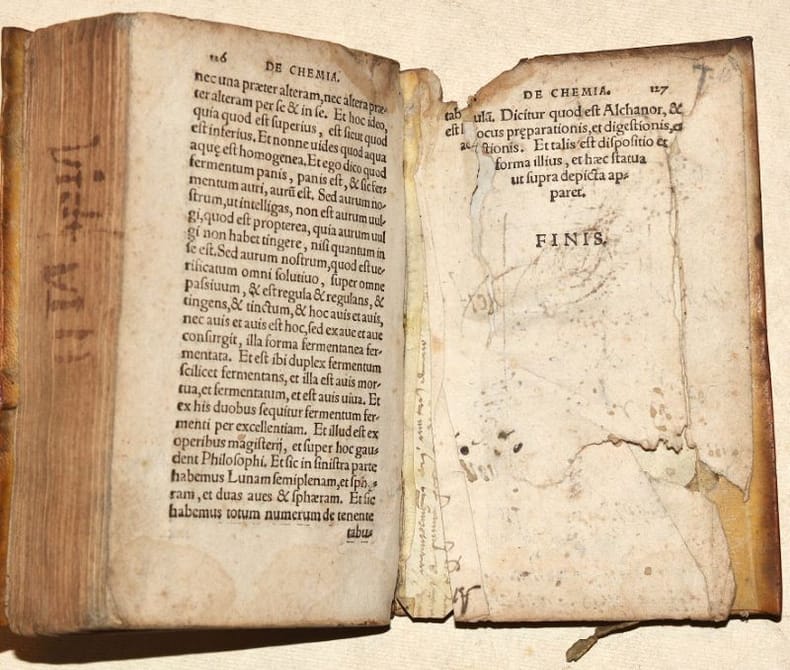 126 DE CHEMIA.
nec una præter alteram, nec altera præ-
ter alteram per se & in se. Et hoc ideo,
quia quod est superius, est sicut quod
est inferius. Et nonne uides quod aqua
aquę est homogenea. Et ego dico quod
fermentum panis, panis est, & sic fer-
mentum auri, aurū est. Sed aurum no-
strum, ut intelligas, non est aurum uul-
gi, quod est propterea, quia aurum uul
gi non habet tingere, nisi quantum in
se est. Sed aurum nostrum, quod est ue-
rificatum omni solutiuo, super omne
passiuum, & est regula & regulans, &
tingens, & tinctum, & hoc auis et auis,
nec auis et auis est hoc, sed ex aue et aue
consurgit, illa forma fermentanea fer-
mentata. Et est ibi duplex fermentum
scilicet fermentans, et illa est auis mor-
tua, et fermentatum, et est auis uiua. Et
ex his duobus sequitur fermentum fer-
menti per excellentiam. Et illud est ex
operibus magisterij, et super hoc gau-
dent Philosophi. Et sic in sinistra parte
habemus Lunam semiplenam, et sphę-
ram, et duas aues & sphæram. Et sic
habemus totum numerum de tenente
tabu-
DE CHEMIA. 127
tabulā. Dicitur quod est Alchanor, &
est locus pręparationis, et digestionis, et
actionis. Et talis est dispositio et
forma illius, et hæc statua
ut supra depicta ap-
paret.
FINIS.